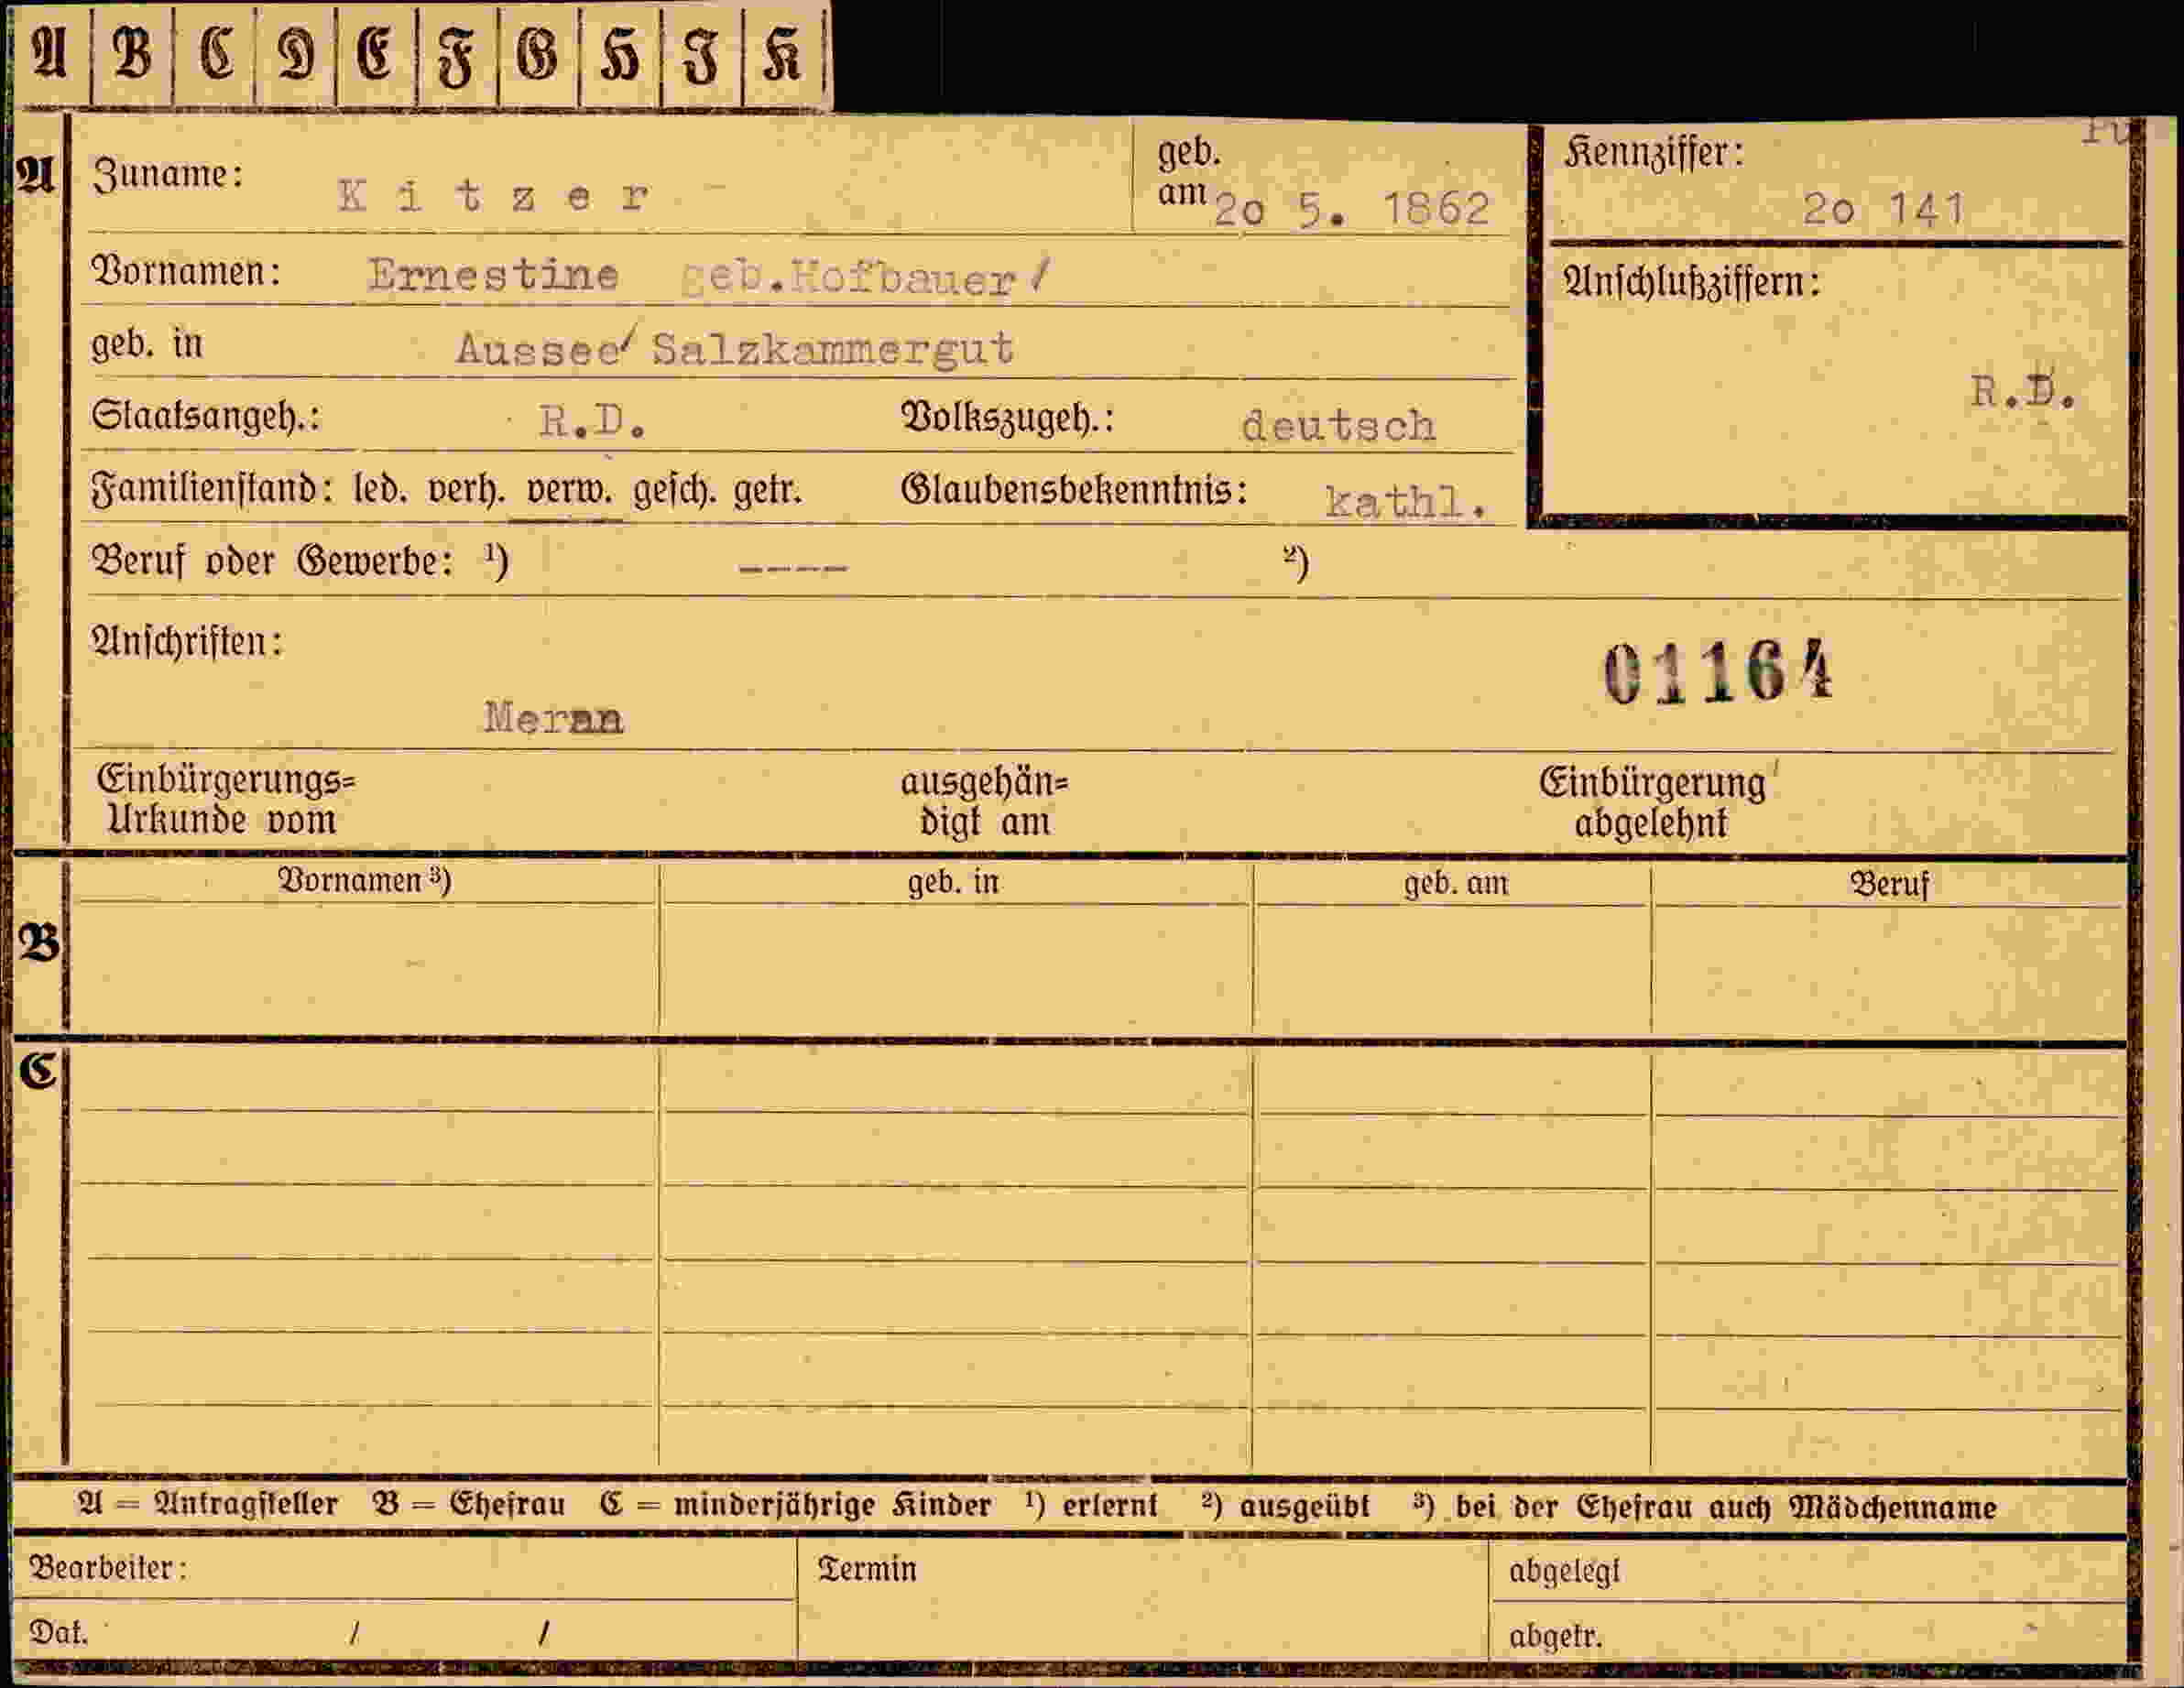 A B C D E F G H I K
A
Zuname: Kitzer -
geb. am 2o 5. 1862
Kennziffer: 2o 141
Vornamen: Ernestine geb.Hofbauer/
Anschlußziffern:
geb. in Aussee/ Salzkammergut
R.D.
Staatsangeh.: R.D. Volkszugeh.: deutsch
Familienstand: led. verh. verw. gesch. getr. Glaubensbekenntnis: kathl.
Beruf oder Gewerbe: ¹) ---- ²)
Anschriften:
01164
Meran
Einbürgerungs=
Urkunde vom
ausgehän=
digt am
Einbürgerung
abgelehnt
Vornamen ³) geb. in geb. am Beruf
B
C
A = Antragsteller B = Ehefrau C = minderjährige Kinder ¹) erlernt ²) ausgeübt ³) bei der Ehefrau auch Mädchenname
Bearbeiter: Termin abgelegt
Dat. / / abgetr.